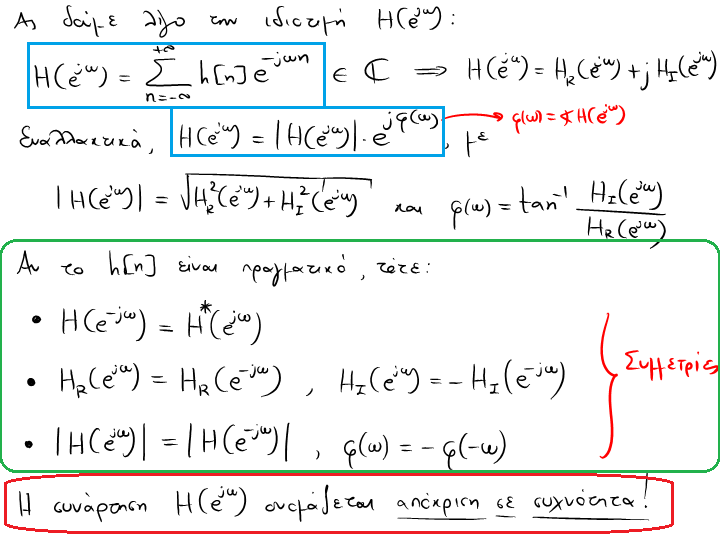 Ας δούμε λίγο την ιδιοτιμή H(e^{jω}):
H(e^{jω}) = \sum_{n=-∞}^{+∞} h[n] e^{-jωn} ∈ ℂ ⟹ H(e^{jω}) = H_R(e^{jω}) + j H_I(e^{jω})
Εναλλακτικά, H(e^{jω}) = |H(e^{jω})| · e^{jφ(ω)}, με φ(ω) = ∢H(e^{jω})
|H(e^{jω})| = \sqrt{H_R^2(e^{jω}) + H_I^2(e^{jω})} και φ(ω) = tan^{-1} \frac{H_I(e^{jω})}{H_R(e^{jω})}
Αν το h[n] είναι πραγματικό, τότε:
• H(e^{-jω}) = H^*(e^{jω})
• H_R(e^{jω}) = H_R(e^{-jω}), H_I(e^{jω}) = -H_I(e^{-jω})
Συμμετρίες
• |H(e^{jω})| = |H(e^{-jω})|, φ(ω) = -φ(-ω)
Η συνάρτηση H(e^{jω}) ονομάζεται απόκριση σε συχνότητα!